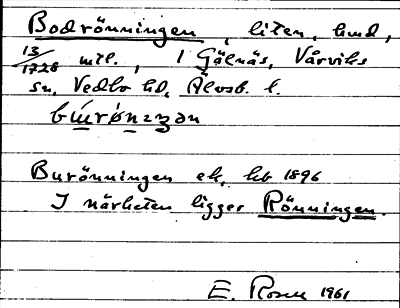 Bodrönningen, liten, hmd,
13/1728 mtl., i Gälnäs, Vårviks
sn, Vedbo hd, Älvsb. l.
Burönningen ek, hb 1896
I närheten ligger Rönningen.
E. Rosen 1961